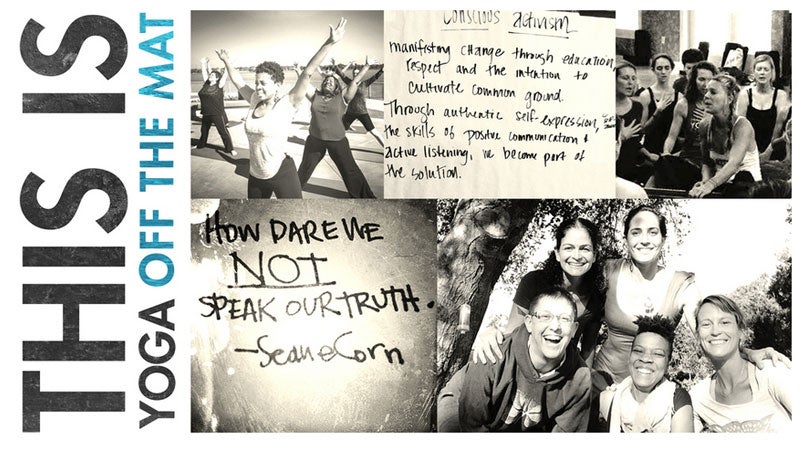 THIS IS
YOGA OFF THE MAT
conscious activism
manifisting change through education,
respect and the intention to
cultivate common ground.
Through authentic self-expression,
the skills of positive communication &
active listening, we become part of
the solution.
HOW DARE WE
NOT
SPEAK OUR TRUTH.
-Seane Corn